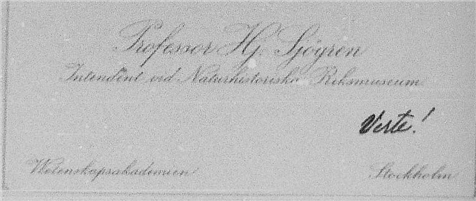 Professor Hj. Sjögren
Intendent vid Naturhistoriska Riksmuseum
Verte!
Wetenskapsakademien Stockholm